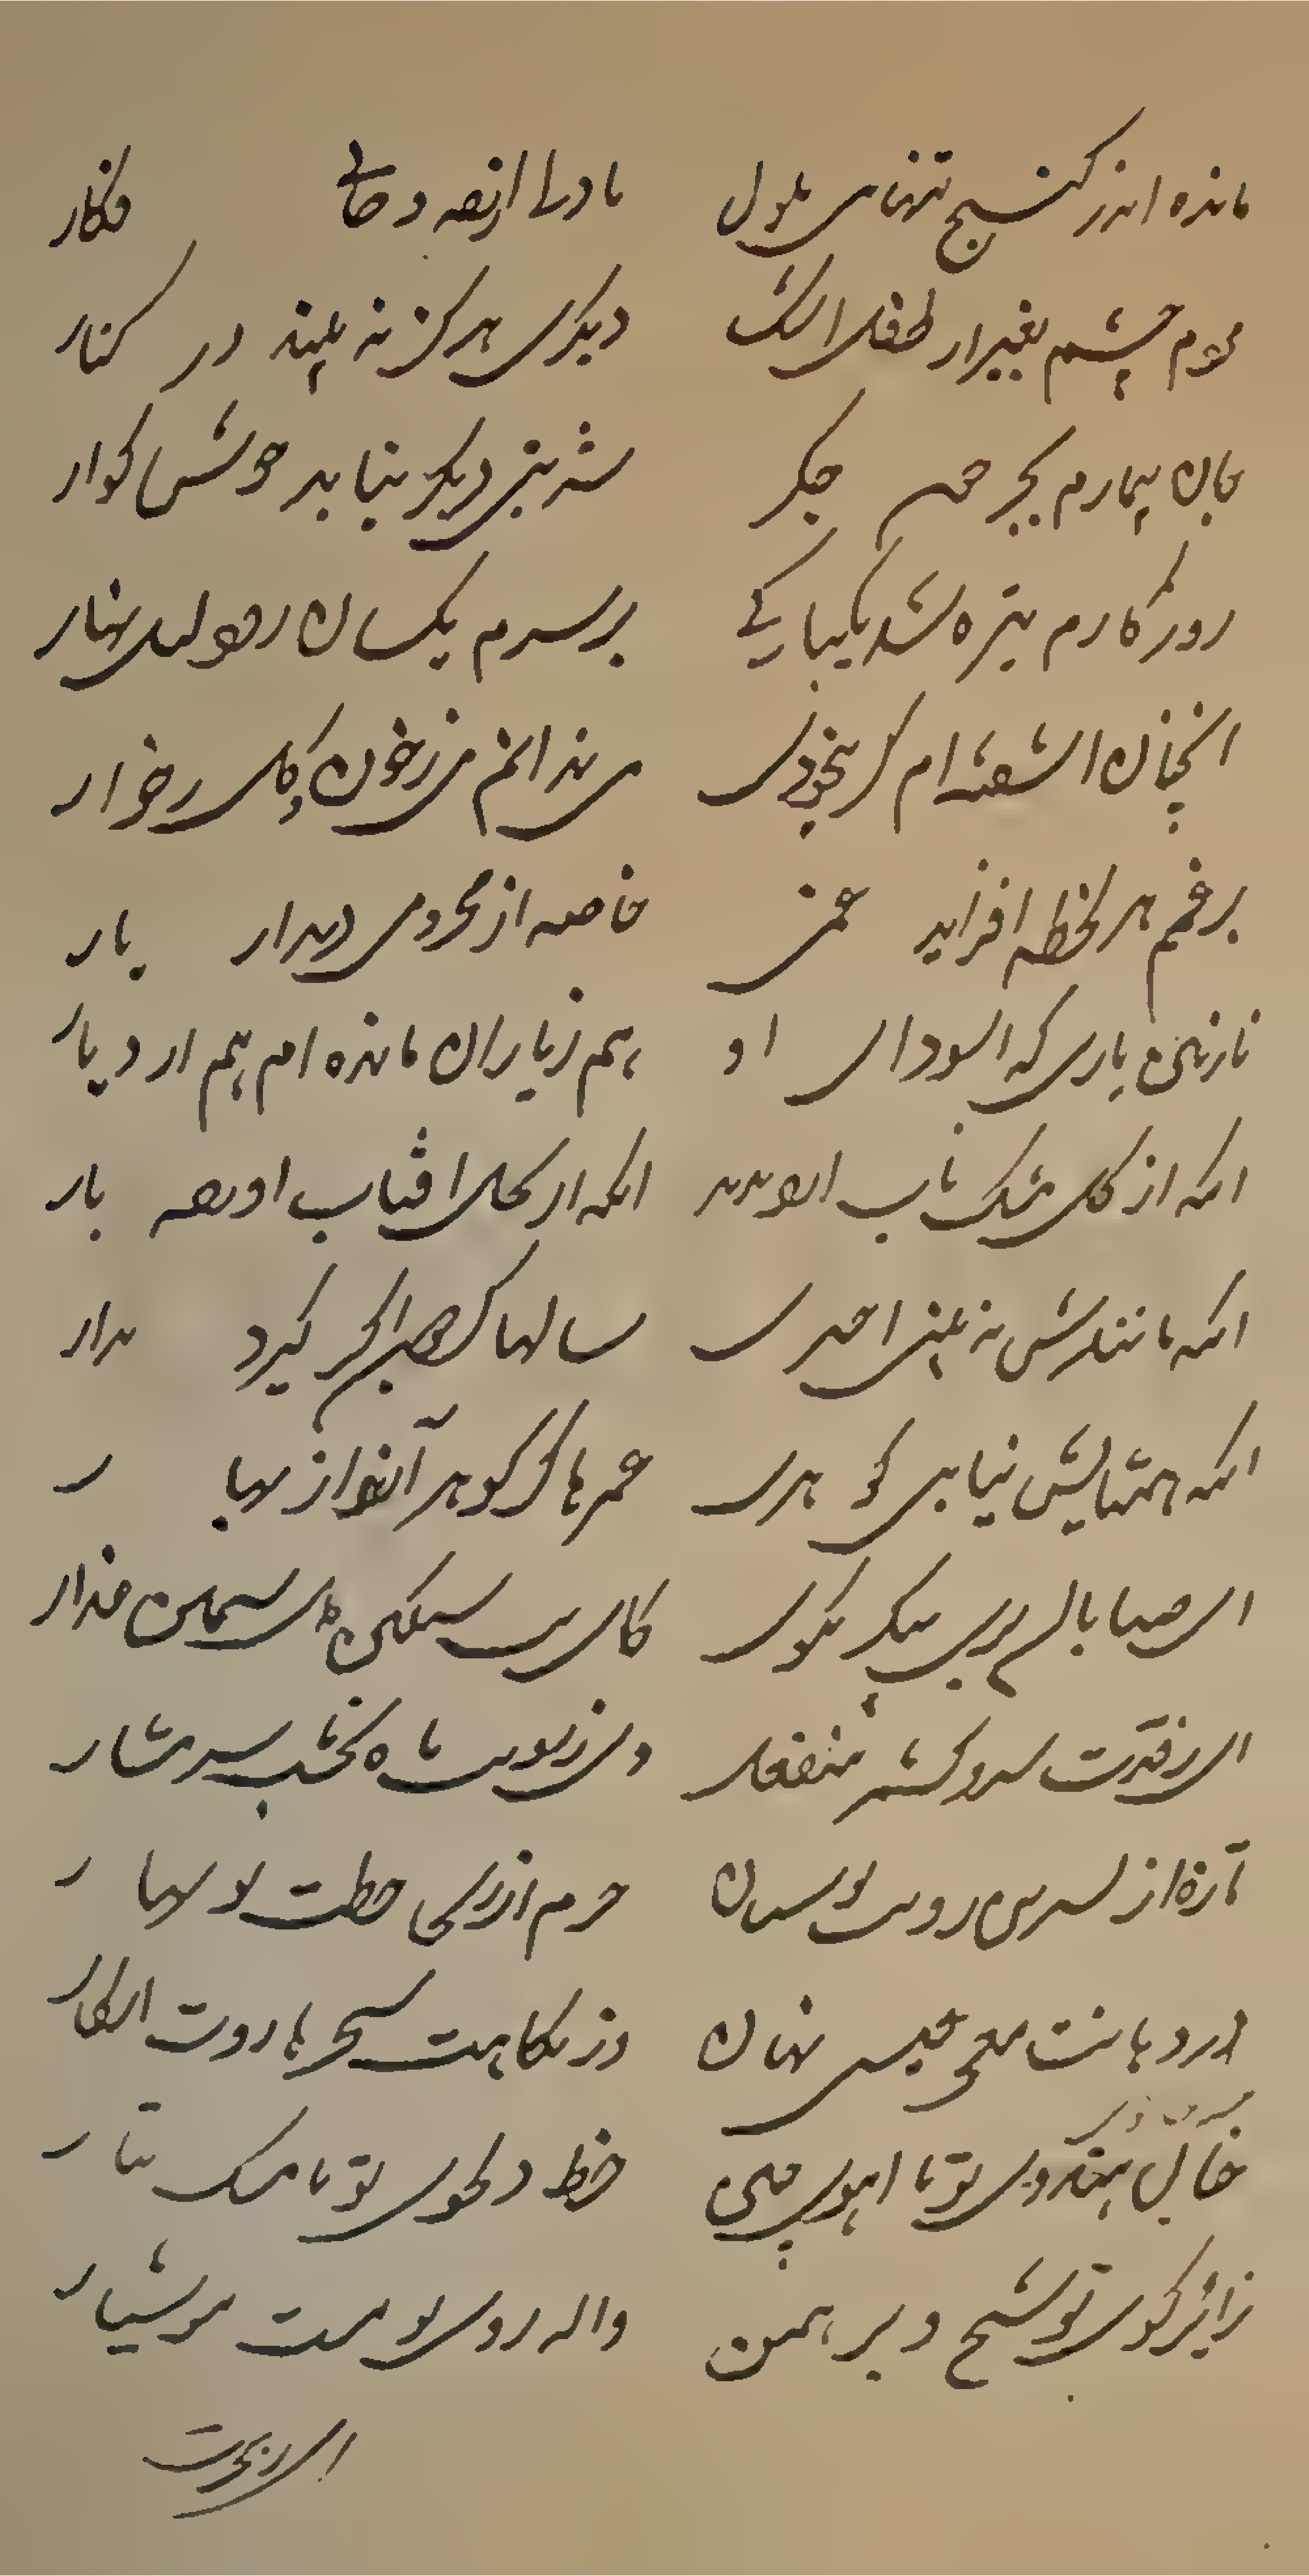 مانده اندر کنج تنهایی ملول با دلی از غصه و جانی فکار
مردم چشمم بغیر از طفل اشک دیگری هرگز نه بیند در کنار
جان بیمارم بجز خون جگر شربتی دیگر نیابد خوش گوار
روزگارم تیره شد یکبارگی بر سرم یکسان رود لیل و نهار
آنچنان آشفته ام کز بیخودی می ندانم من خزان و گل ز خار
بر غمم هر لحظه افزاید غمی خاصه از محرومی دیدار یار
نازنین یاری که از سودای او هم ز یاران مانده ام هم از دیار
آنکه از گل مشک ناب آرد پدید آنکه از گل آفتاب آورده بار
آنکه مانندش نه بینی اختری سالها گر چرخ گیرد مدار
آنکه همتایش نیابی گوهری عمرها گر گوهر آرند از بحار
ای صبا با آن پری پیکر بگوی کای بت سنگین دل سیمین عذار
ای ز قدت سرو کشمر منفعل وی ز رویت ماه نخشب شرمسار
تازه از نسرین رویت بوستان خرم از ریحان خطت نو بهار
در دهانت معجز عیسی نهان وز نگاهت سحر هاروت آشکار
خال هندوی تو با آهوی چین خط دلجوی تو با مشک تتار
زائر کوی تو شیخ و برهمن واله روی تو مست و هوشیار
ای ز هجرت